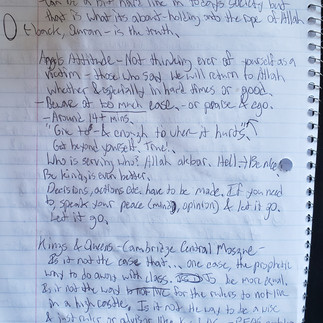 can be a bit hard like in today's society but
that is what its about - holding onto the rope of Allah
& back, Quran - is the truth.
Angis Attitude - Not thinking ever of yourself as a
victim - those who say He will return to Allah
whether & especially in hard times or good.
- Beware of too much ease. - or praise & ego.
- Around 14+ mins.
"Give to - & enough to when it hurts."
Get beyond yourself. Time!.
Who is serving who? Allah akbar. Hell. → Be nice
Be kind, is even better.
Decisions, actions etc. have to be made. If you need
to speak your peace (mind, opinion) & let it go.
Let it go.
Kings & Queens - Cambridge Central Mosque -
Is it not the case that... one case, the prophetic
way to do away with class. be more equal.
Is it not the way for the rulers to not live
in a high castle. Is it not the way to be a wise
& just ruler or